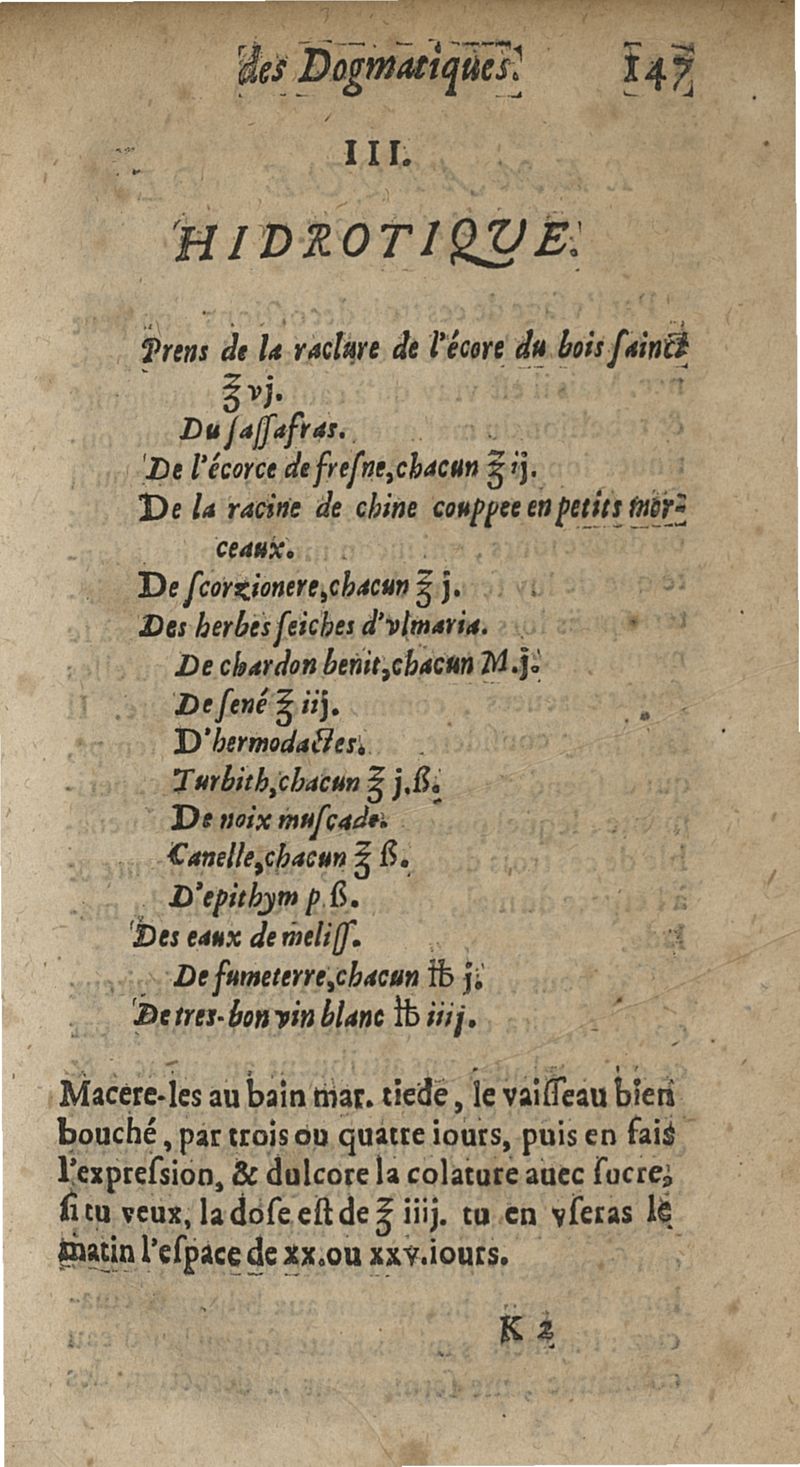 des Dogmatiques. 147
III.
HIDROTIQVE.
Prens de la raclure de l'écore du bois ſainct
℥ vj.
Du ſaſſafras.
De l'écorce de freſne, chacun ℥ ij.
De la racine de chine couppee en petits mor-
ceaux.
De ſcorzionere, chacun ℥ j.
Des herbes ſeiches d'vlmaria.
De chardon benit, chacun M. j.
De ſené ℥ iij.
D'hermodactes.
Turbith, chacun ℥ j. ß.
De noix muſcade.
Canelle, chacun ℥ ß.
D'epithym p. ß.
Des eaux de meliſſ.
De fumeterre, chacun ℔ j.
De tres-bon vin blanc ℔ iiij.
Macere-les au bain mar. tiede, le vaiſſeau bien
bouché, par trois ou quatre iours, puis en fais
l'expreſsion, & dulcore la colature auec ſucre,
ſi tu veux, la doſe eſt de ℥ iiij. tu en vſeras le
matin l'eſpace de xx. ou xxv. iours.
K 2